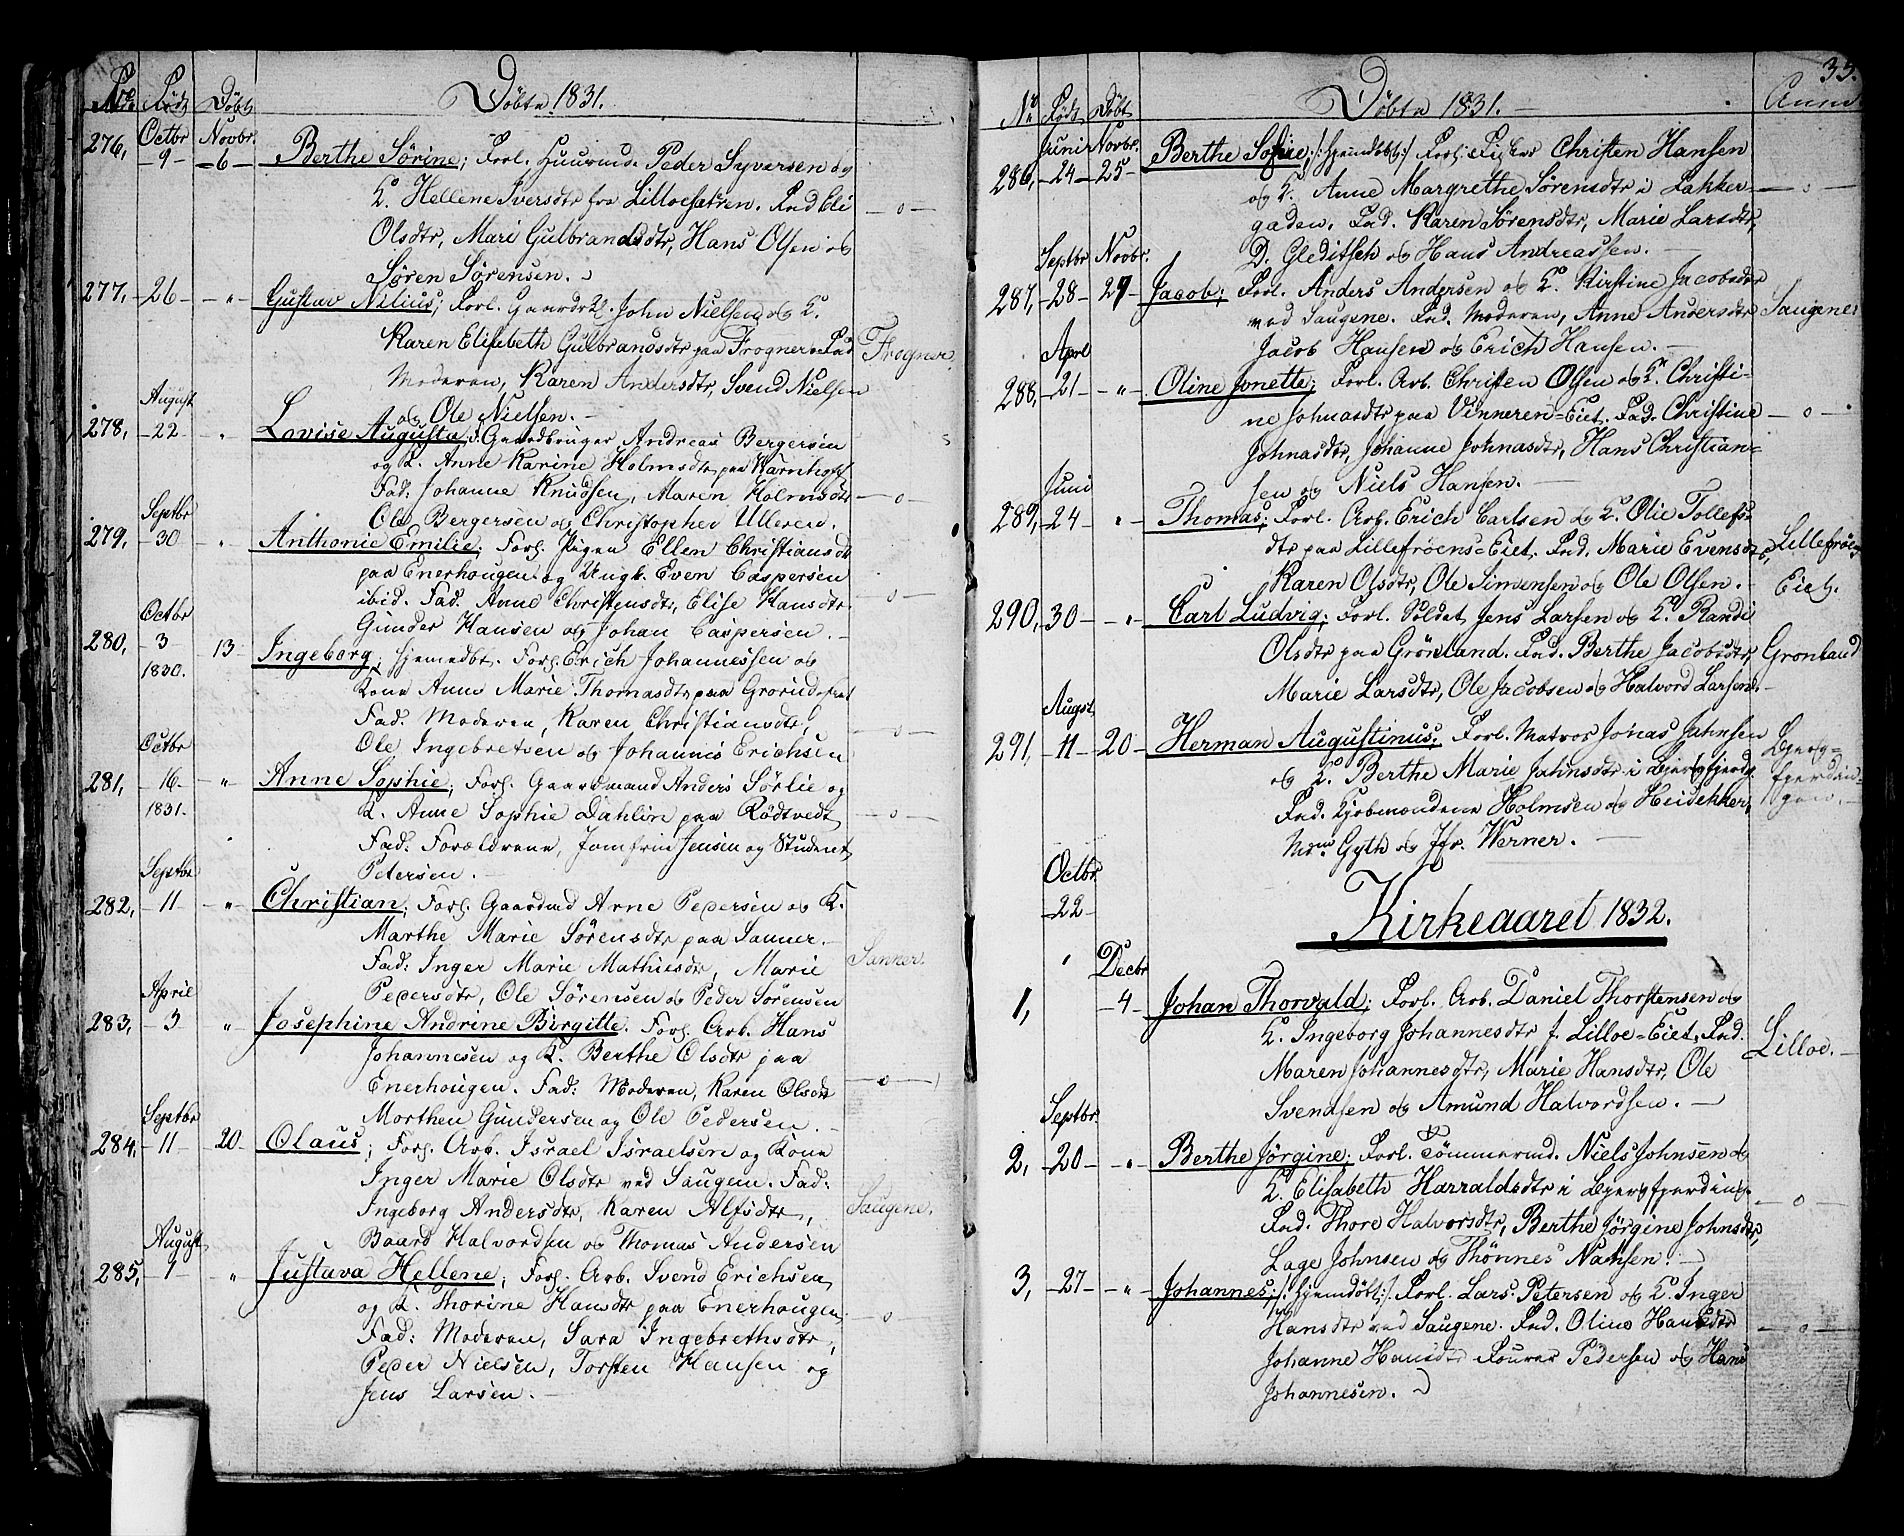 No. Født Døbt Døbte 1831.
276, Octbr 9 Novbr. 6 Berthe Sørine; Forl. Huusmd. Peder Syversen og
K. Hellene Iversdtr fra Lilloesætren. Fad Eli
Olsdtr, Mari Gulbrandsdtr, Hans Olsen og
Søren Sørensen.
277, 26 " Gustav Nilius; Forl. Gaardbr. John Nielsen og K.
Karen Elisebeth Gulbrandsdtr paa Frogner. Fad
Moderen, Karen Andersdtr, Svend Nielsen
og Ole Nielsen. Frogner.
278, August 22 " Lovise Augusta; F. Gaardbruger Andreas Bergersen
og K. Anne Karine Holmsdtr paa
Fad: Johanne Knudsen, Maren Holmsdtr
Ole Bergersen og Christopher Ulleren.
279, Septbr 30 " Anthonie Emilie; Forl. Pigen Ellen Christiansdtr
paa Enerhougen og Ungk. Even Caspersen
ibid. Fad. Anne Christensdtr, Elise Hansdtr
Gunder Hansen og Johan Caspersen.
280, Octbr 3 1830. 13 Ingeborg; hjemedbt. Forl. Erich Johannessen og
Kone Anne Marie Thomasdtr paa Grorud
Fad. Moderen, Karen Christiansdtr,
Ole Ingebretsen og Johannis Erichsen
281, Octbr 16 1831. " Anne Sophie; Forl. Gaardmand Anders Sørlie og
K. Anne Sophie Dahlin paa Rødtvedt
Fad: Forældrene, Jomfrue Jensen og Student
Petersen.
282, Septbr 11 " Christian; Forl. Gaardmd Arne Pedersen og K.
Marthe Marie Sørensdtr paa Sanner.
Fad: Inger Marie Mathiesdtr, Marie
Pedersdtr, Ole Sørensen og Peder Sørensen Sanner.
283, April 3 " Josephine Andrine Birgitte. Forl. Arb. Hans
Johannesen og K. Berthe Olsdtr paa
Enerhougen. Fad: Moderen, Karen Olsdtr
Morthen Gundersen og Ole Pedersen.
284, Septbr 11 20 Olaus; Forl. Arb. Israel Israelsen og Kone
Inger Marie Olsdtr ved Saugene. Fad:
Ingeborg Andersdtr, Karen Alfsdtr,
Baard Halvordsen og Thomas Andersen Saugene.
285, August 1 " Justava Hellene; Forl. Arb. Svend Erichsen
og K. Thorine Hansdtr paa Enerhougen
Fad: Moderen, Sara Ingebrethsdtr,
Peder Nielsen, Torsten Hansen og
Jens Larsen.
35.
No Født Døbt Døbte 1831. Anm
286, Juni 24 Novbr. 25 Berthe Sofie; /: hjemdøbt :/ Forl: Fisker Christen Hansen
og K. Anne Margrethe Sørensdtr i Lakker-
gaden. Fad. Karen Sørensdtr, Marie Larsdtr,
D. Gleditsch og Hans Andreassen.
287, Septbr 28 Novbr. 27 Jacob; Forl. Anders Andersen og K. Kirstine Jacobsdtr
ved Saugene. Fad. Moderen, Anne Andersdtr
Jacob Hansen og Erich Hansen. Saugene
288, Aprl 21 " Oline Jonette; Forl. Arb. Christen Olsen og K. Christi-
ne Johnasdtr paa Vinneren=Eiet. Fad. Christine
Johnasdtr, Johanne Johnasdtr, Hans Christian-
sen og Niels Hansen.
289, Juni 24 " Thomas; Forl. Arb. Erich Carlsen og K. Olie Tollefs-
dtr paa Lillefrøens=Eiet. Fad. Marie Evensdtr,
Karen Olsdtr, Ole Simensen og Ole Olsen. Lillefrøens Eiet.
290, 30 " Carl Ludvig; Forl. Soldat Jens Larsen og K. Randi
Olsdtr paa Grönland. Fad. Berthe Jacobsdtr,
Marie Larsdtr, Ole Jacobsen og Halvord Larsen. Gronland
291, Augst. 11 20 Herman Augustinus; Forl. Matros Jonas Jahnsen
og K. Berthe Marie Jahnsdtr i Bjergfjerdg
Fad. Kjøbmændene Holmsen og Heidekker,
Mdm Gyth og Jfr. Werner. Bjerg=
fjerdin=
gen.
Kirkeaaret 1832.
1, Octbr. 22 Decbr 4 Johan Thorvald; Forl. Arb. Daniel Thorstensen og
K. Ingeborg Johannesdtr f. Lilloe=Eiet. Fad.
Maren Johannesdtr, Marie Hansdtr, Ole
Svendsen og Amund Halvordsen. Lilloe.
2, Septbr. 20 " Berthe Jørgine; Forl. Tömmermd. Niels Johnsen og
K. Elisabeth Harraldsdtr i Bjergfjerding.
Fad. Thore Halvorsdtr, Berthe Jørgine Johnsdtr,
Lage Johnsen og Thønnes Nansen.
3, 27 " Johannes; /: hjemdöbt :/ Forl. Lars Petersen og K. Inger
Hansdtr ved Saugene. Fad. Oline Hansdtr
Johanne Hansdtr Pedersen og Hans
Johannesen.